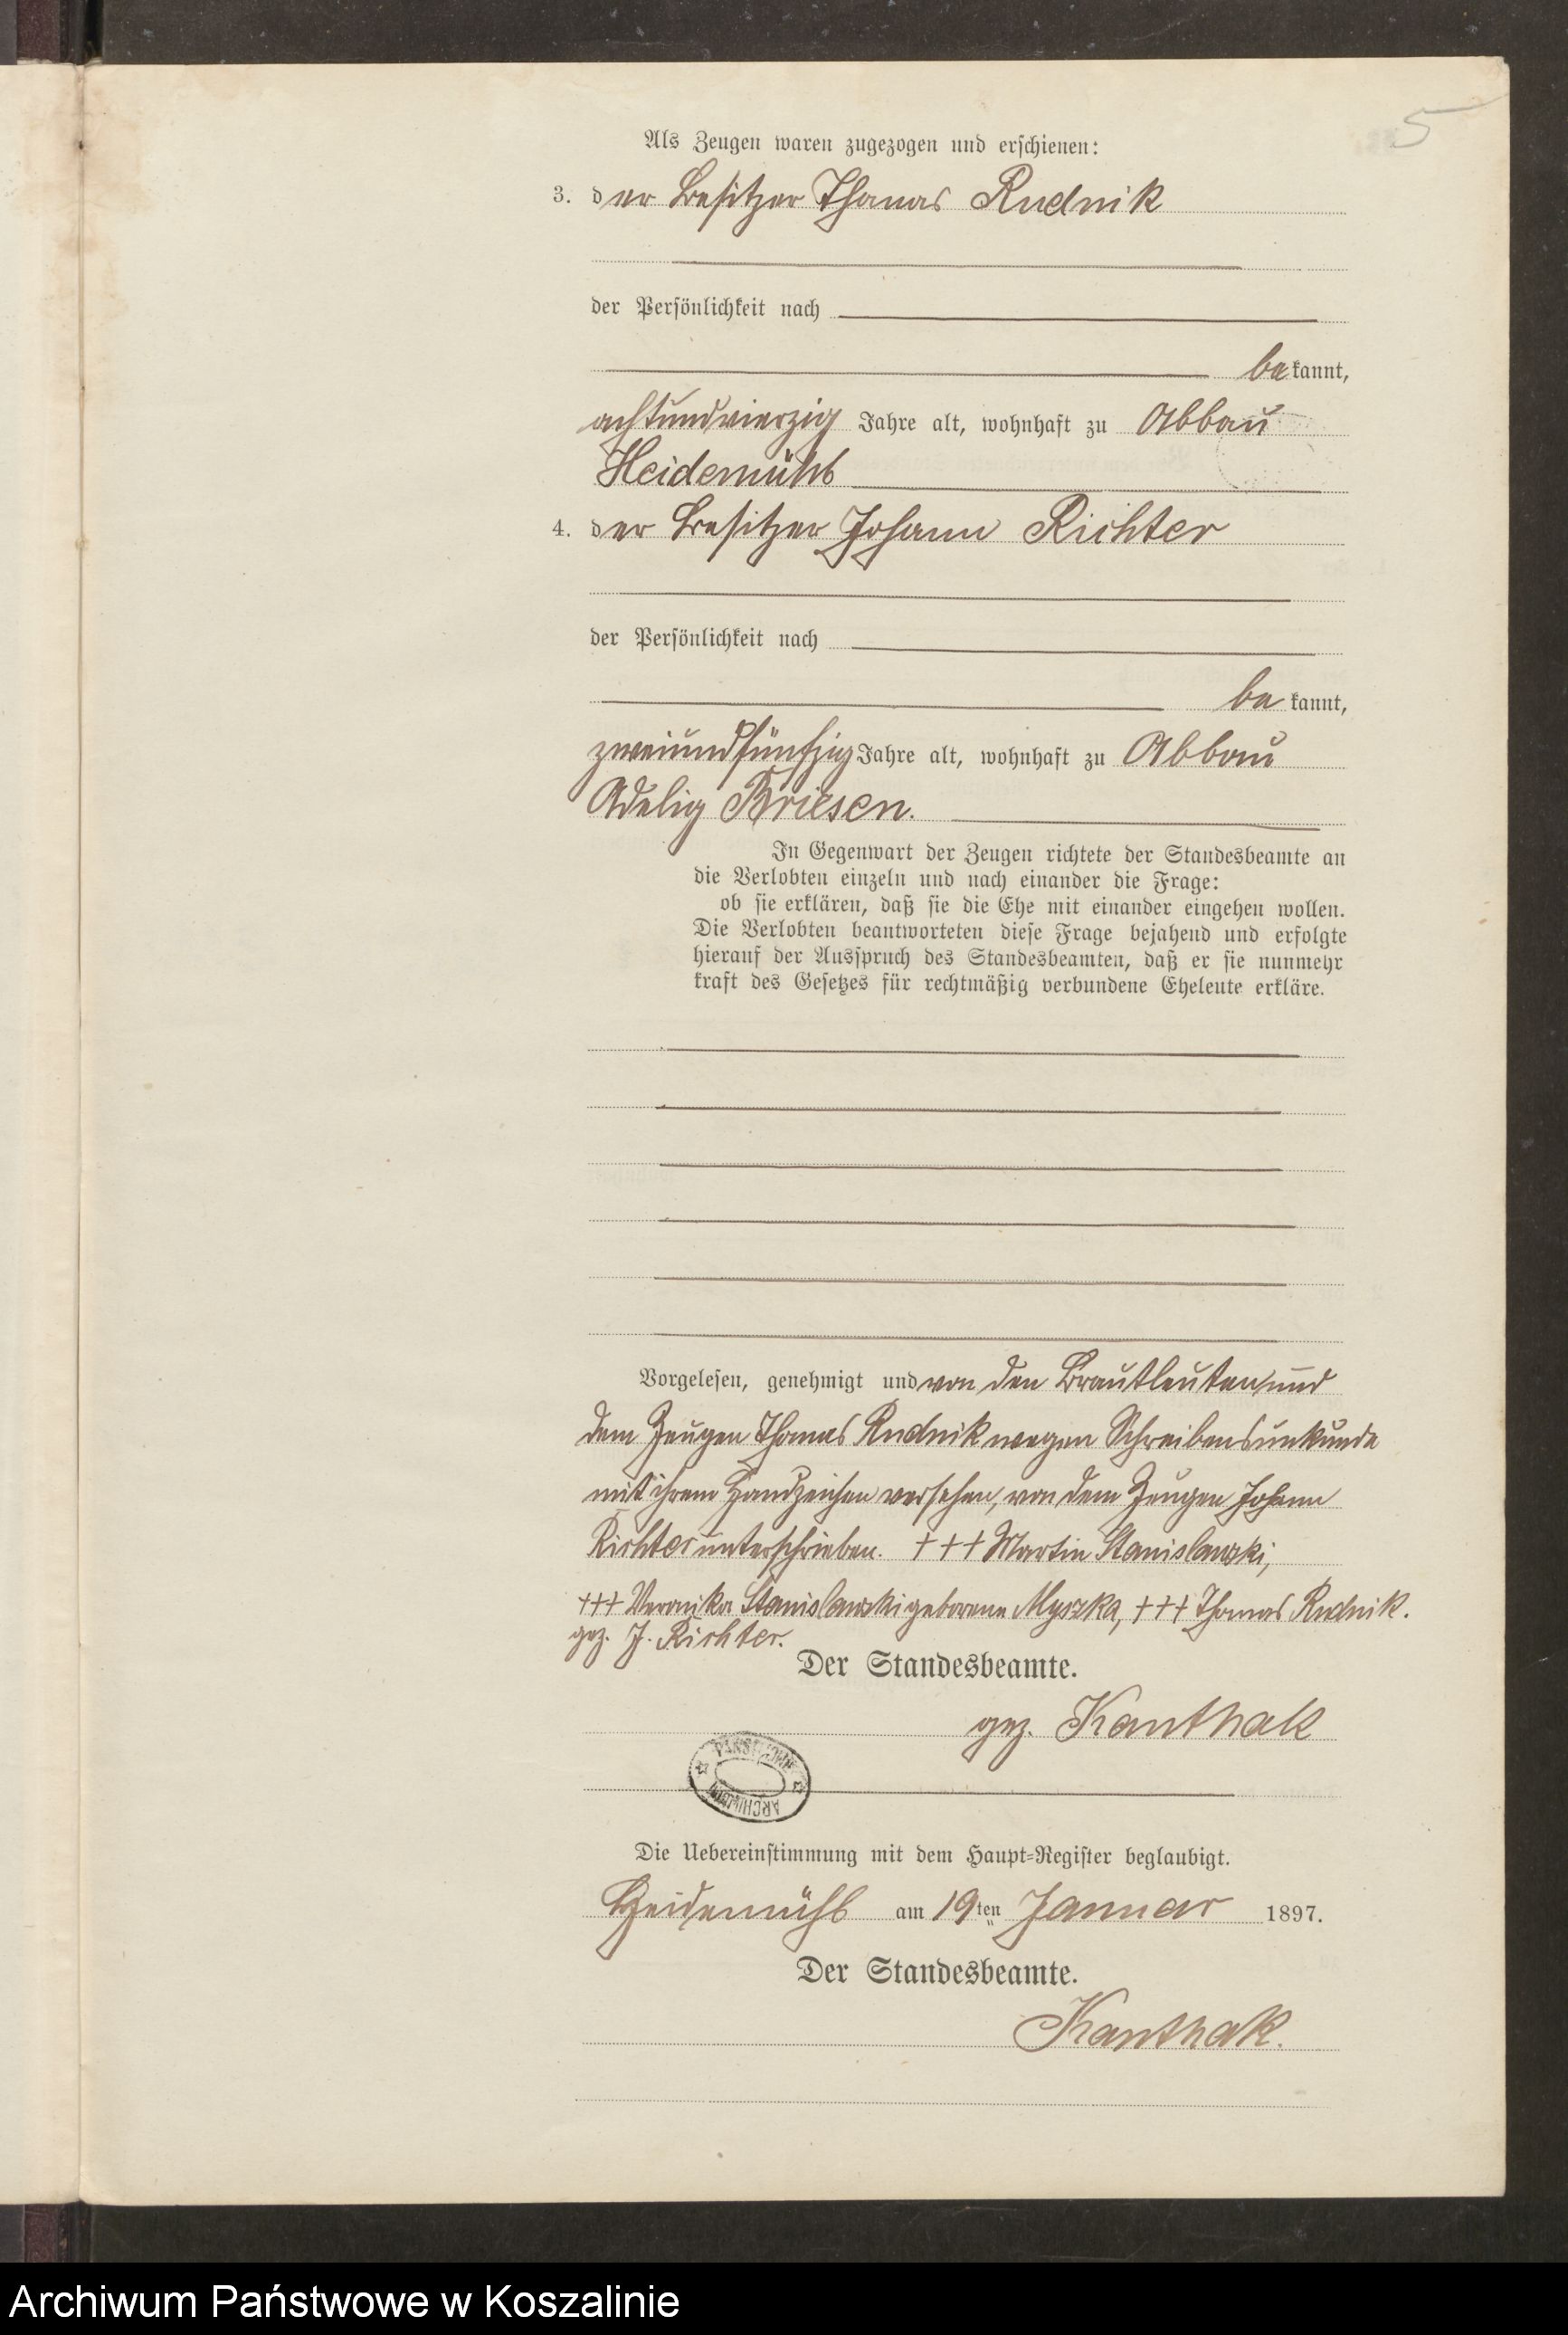 5
Als Zeugen waren zugezogen und erschienen:
3. der Besitzer Thomas Rudnik
der Persönlichkeit nach
bekannt,
achtundvierzig Jahre alt, wohnhaft zu Abbau
Heidemühl
4. der Besitzer Johann Richter
der Persönlichkeit nach
bekannt,
zweiundfünfzig Jahre alt, wohnhaft zu Abbau
Adelig Briesen.
In Gegenwart der Zeugen richtete der Standesbeamte an
die Verlobten einzeln und nach einander die Frage:
ob sie erklären, daß sie die Ehe mit einander eingehen wollen.
Die Verlobten beantworteten diese Frage bejahend und erfolgte
hierauf der Ausspruch des Standesbeamten, daß er sie nunmehr
kraft des Gesetzes für rechtmäßig verbundene Eheleute erkläre.
Vorgelesen, genehmigt und von den Brautleuten und
dem Zeugen Thomas Rudnik wegen Schreibensunkunde
mit ihrem Handzeichen versehen, von dem Zeugen Johann
Richter unterschrieben. +++ Martin Stanislawski,
+++ Veronika Stanislawski geborene Myszka, +++ Thomas Rudnik.
gez. J. Richter.
Der Standesbeamte.
gez. Kanthak
PAŃSTWOWE
ARCHIWUM
Die Uebereinstimmung mit dem Haupt-Register beglaubigt.
Heidemühl am 19ten Januar 1897.
Der Standesbeamte.
Kanthak.
Archiwum Państwowe w Koszalinie